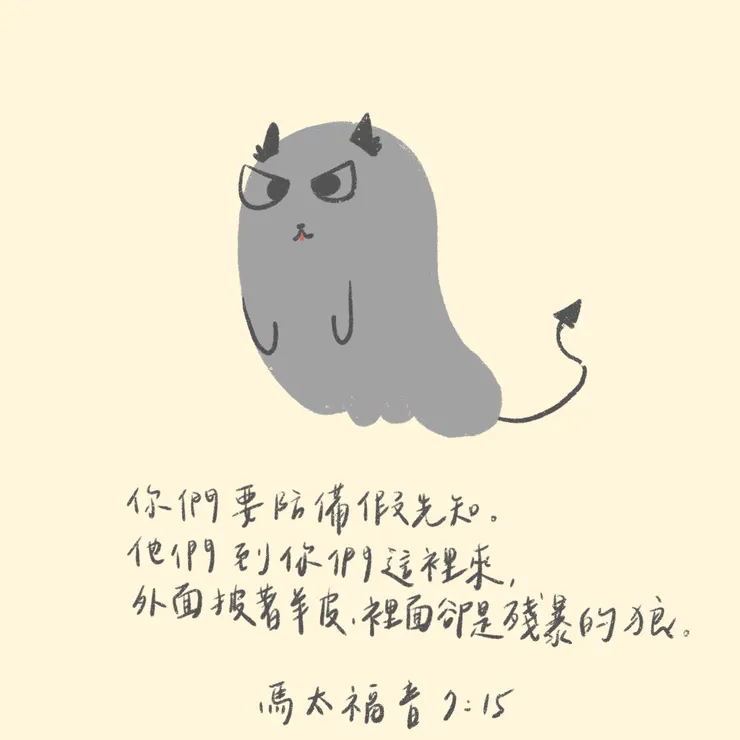 你們要防備假先知。
他們到你們這裡來,
外面披著羊皮、裡面卻是殘暴的狼。
馬太福音 7:15